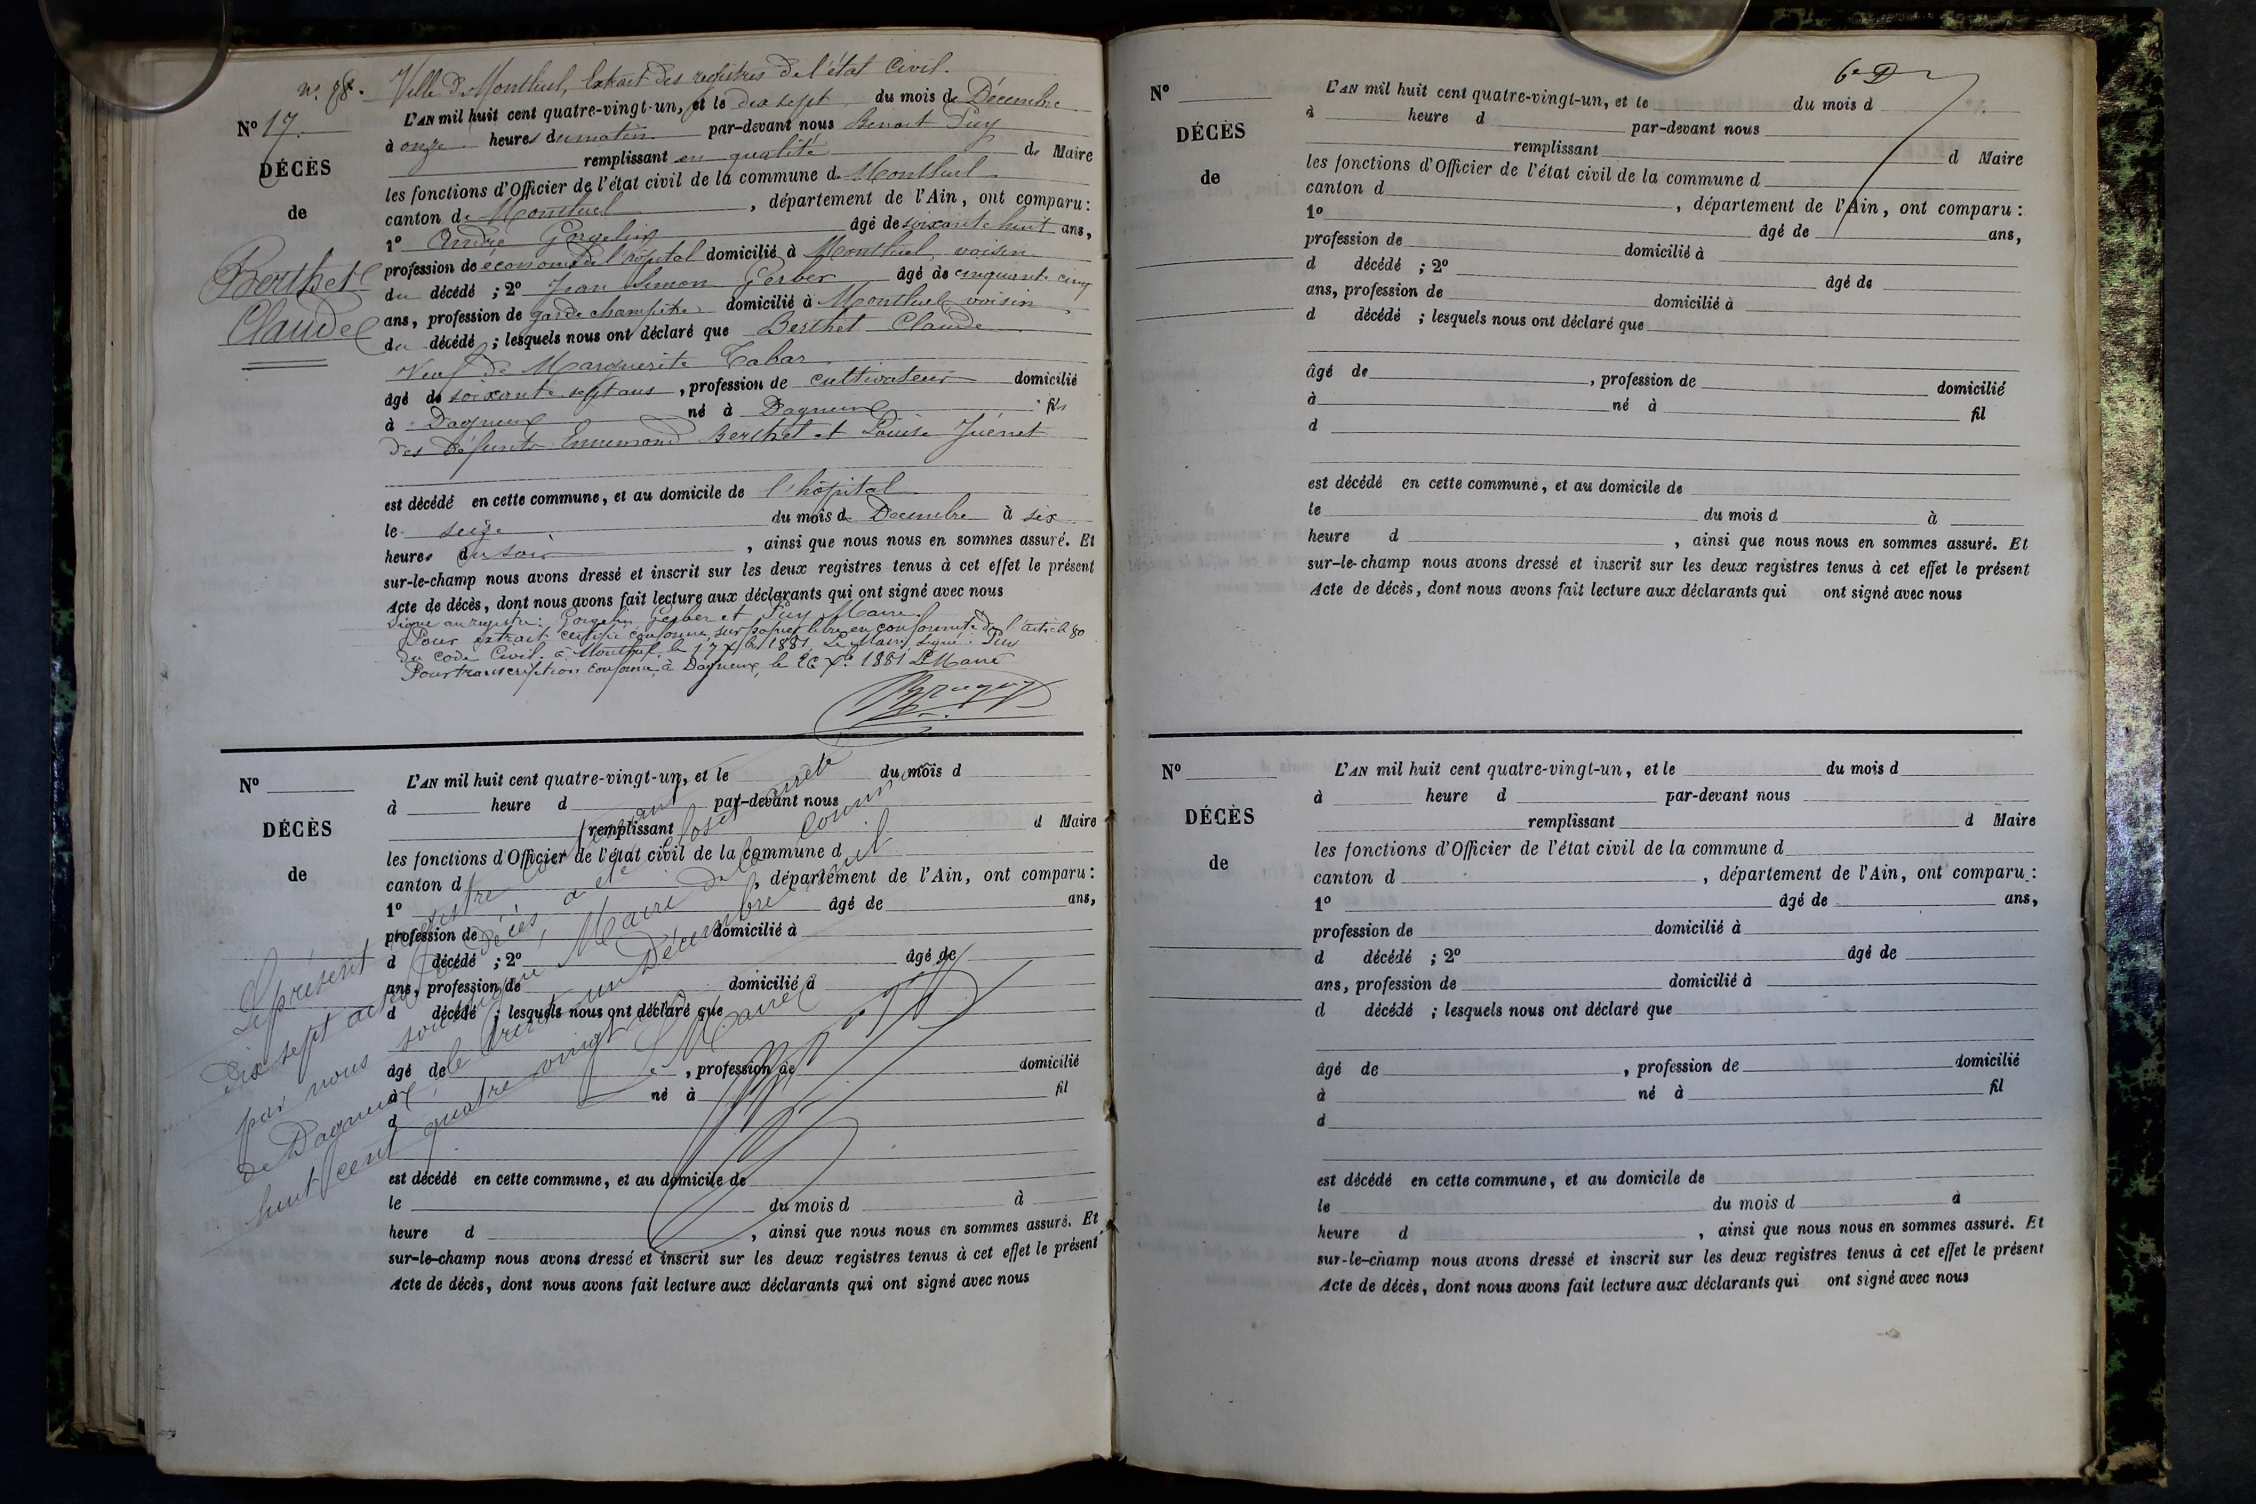 n° 98. Ville de Montluel, Extrait des registres de l'état Civil.
N° 17.
DÉCÈS
de
Berthet
Claude
L'AN mil huit cent quatre-vingt-un, et le dix sept du mois de Décembre
à onze heures du matin par-devant nous Benoit Puy
remplissant en qualité de Maire
les fonctions d'Officier de l'état civil de la commune de Montluel
canton de Montluel, département de l'Ain, ont comparu :
1° André Gorgelin âgé de soixante huit ans,
profession de économe de l'hôpital domicilié à Montluel, voisin
du décédé ; 2° Jean Simon Gerber âgé de cinquante cinq
ans, profession de garde champêtre domicilié à Montluel voisin
du décédé ; lesquels nous ont déclaré que Berthet Claude
Veuf de Marguerite Cabas
âgé de soixante sept ans, profession de cultivateur domicilié
à Dagneux né à Dagneux fils
des défunts Ennemond Berthet et Louise Juénet
est décédé en cette commune, et au domicile de l'hôpital
le seize du mois de Decembre à six
heures du soir, ainsi que nous nous en sommes assuré. Et
sur-le-champ nous avons dressé et inscrit sur les deux registres tenus à cet effet le présent
Acte de décès, dont nous avons fait lecture aux déclarants qui ont signé avec nous
Signé au registre : Gorgelin Gerber et Puy Maire.
Pour extrait certifié conforme, sur papier libre en conformité de l'article 80
du code Civil. à Montluel, le 17 Xbre 1881, Le Maire, signé : Puy
Pour transcription conforme, à Dagneux, le 26 Xe 1881 Le Maire
N°
DÉCÈS
de
L'AN mil huit cent quatre-vingt-un, et le du mois d
à heure d par-devant nous
remplissant d Maire
les fonctions d'Officier de l'état civil de la commune d
canton d , département de l'Ain, ont comparu :
1° âgé de ans,
profession de domicilié à
d décédé ; 2° âgé de
ans, profession de domicilié à
d décédé ; lesquels nous ont déclaré que
âgé de , profession de domicilié
à né à fil
d
est décédé en cette commune, et au domicile de
le du mois d à
heure d , ainsi que nous nous en sommes assuré. Et
sur-le-champ nous avons dressé et inscrit sur les deux registres tenus à cet effet le présent
Acte de décès, dont nous avons fait lecture aux déclarants qui ont signé avec nous
Le présent registre contenant
dix sept actes de décès, a été clos et arrêté
par nous soussigné Maire de la commune
de Dagneux, le trente un Décembre mil
huit cent quatre vingt un
Le Maire
6e D
N°
DÉCÈS
de
L'AN mil huit cent quatre-vingt-un, et le du mois d
à heure d par-devant nous
remplissant d Maire
les fonctions d'Officier de l'état civil de la commune d
canton d , département de l'Ain, ont comparu :
1° âgé de ans,
profession de domicilié à
d décédé ; 2° âgé de
ans, profession de domicilié à
d décédé ; lesquels nous ont déclaré que
âgé de , profession de domicilié
à né à fil
d
est décédé en cette commune, et au domicile de
le du mois d à
heure d , ainsi que nous nous en sommes assuré. Et
sur-le-champ nous avons dressé et inscrit sur les deux registres tenus à cet effet le présent
Acte de décès, dont nous avons fait lecture aux déclarants qui ont signé avec nous
N°
DÉCÈS
de
L'AN mil huit cent quatre-vingt-un, et le du mois d
à heure d par-devant nous
remplissant d Maire
les fonctions d'Officier de l'état civil de la commune d
canton d , département de l'Ain, ont comparu :
1° âgé de ans,
profession de domicilié à
d décédé ; 2° âgé de
ans, profession de domicilié à
d décédé ; lesquels nous ont déclaré que
âgé de , profession de domicilié
à né à fil
d
est décédé en cette commune, et au domicile de
le du mois d à
heure d , ainsi que nous nous en sommes assuré. Et
sur-le-champ nous avons dressé et inscrit sur les deux registres tenus à cet effet le présent
Acte de décès, dont nous avons fait lecture aux déclarants qui ont signé avec nous